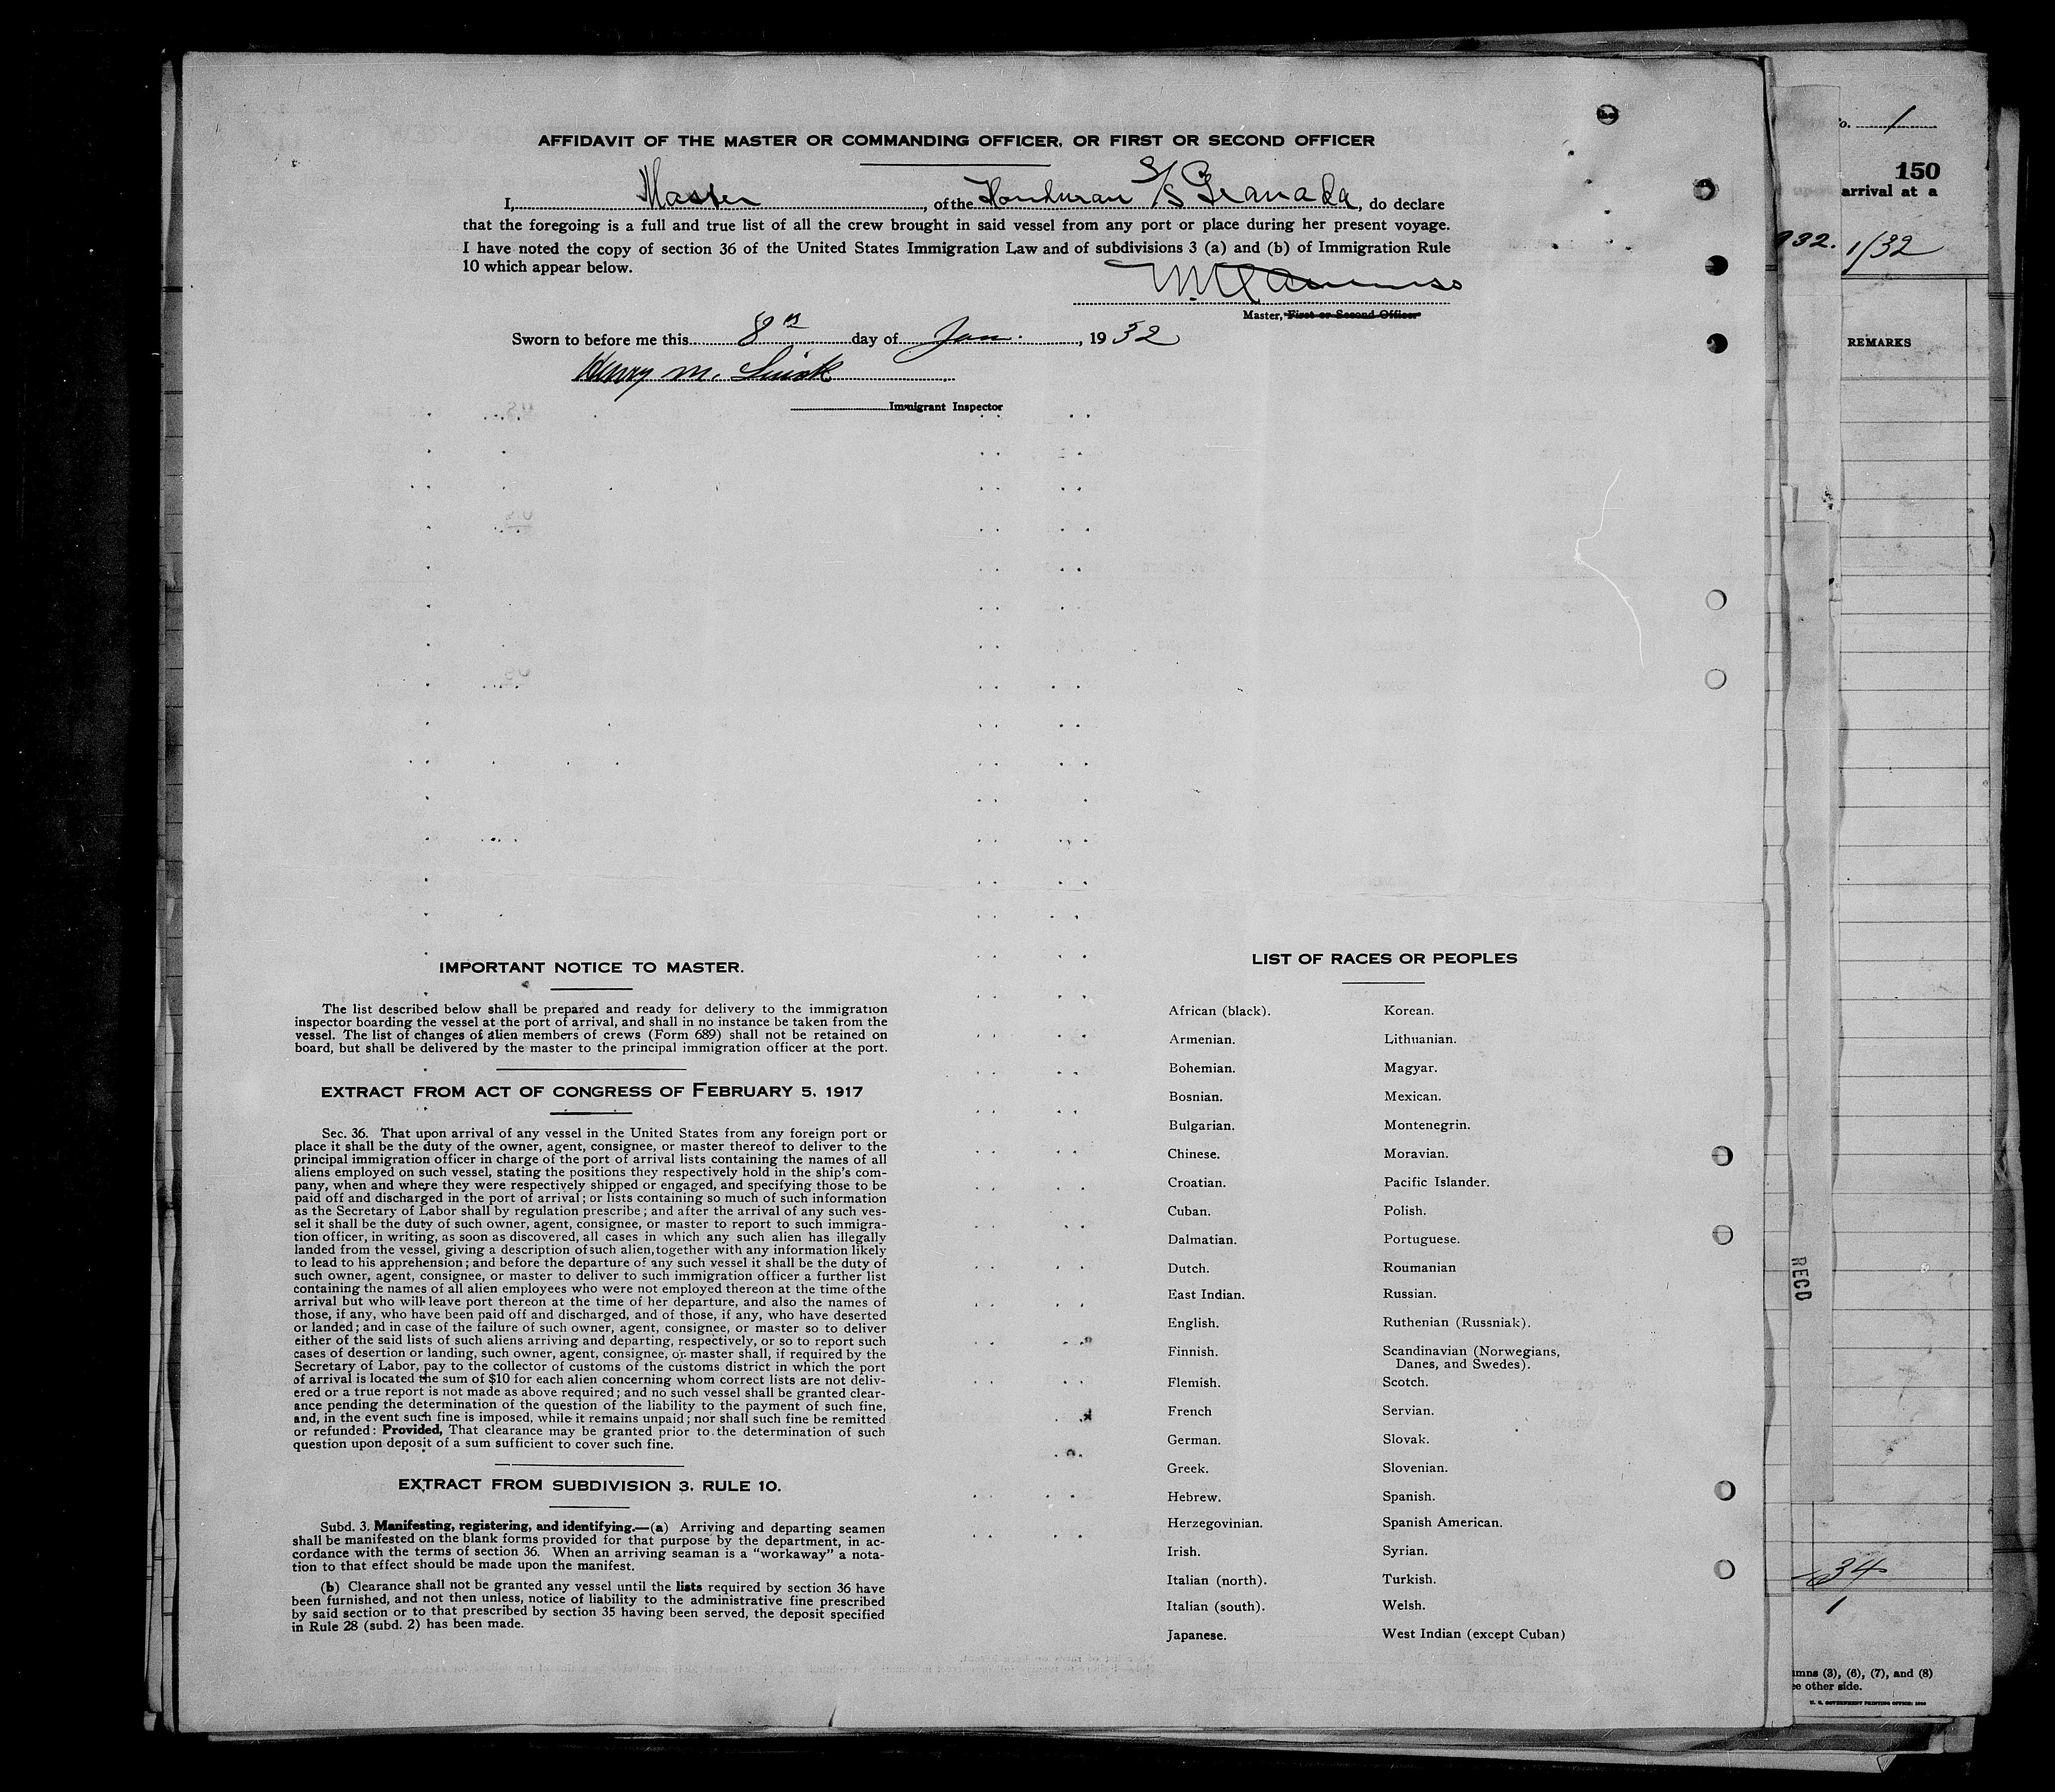 AFFIDAVIT OF THE MASTER OR COMMANDING OFFICER, OR FIRST OR SECOND OFFICER
I, Master, of the Honduran S/S Granada, do declare
that the foregoing is a full and true list of all the crew brought in said vessel from any port or place during her present voyage.
I have noted the copy of section 36 of the United States Immigration Law and of subdivisions 3 (a) and (b) of Immigration Rule
10 which appear below.
Master, First or Second Officer
Sworn to before me this 8th day of Jan., 1932
Henry M.
Immigrant Inspector
IMPORTANT NOTICE TO MASTER.
The list described below shall be prepared and ready for delivery to the immigration
inspector boarding the vessel at the port of arrival, and shall in no instance be taken from the
vessel. The list of changes of alien members of crews (Form 689) shall not be retained on
board, but shall be delivered by the master to the principal immigration officer at the port.
EXTRACT FROM ACT OF CONGRESS OF FEBRUARY 5, 1917
Sec. 36. That upon arrival of any vessel in the United States from any foreign port or
place it shall be the duty of the owner, agent, consignee, or master thereof to deliver to the
principal immigration officer in charge of the port of arrival lists containing the names of all
aliens employed on such vessel, stating the positions they respectively hold in the ship's com-
pany, when and where they were respectively shipped or engaged, and specifying those to be
paid off and discharged in the port of arrival; or lists containing so much of such information
as the Secretary of Labor shall by regulation prescribe; and after the arrival of any such ves-
sel it shall be the duty of such owner, agent, consignee, or master to report to such immigra-
tion officer, in writing, as soon as discovered, all cases in which any such alien has illegally
landed from the vessel, giving a description of such alien, together with any information likely
to lead to his apprehension; and before the departure of any such vessel it shall be the duty of
such owner, agent, consignee, or master to deliver to such immigration officer a further list
containing the names of all alien employees who were not employed thereon at the time of the
arrival but who will leave port thereon at the time of her departure, and also the names of
those, if any, who have been paid off and discharged, and of those, if any, who have deserted
or landed; and in case of the failure of such owner, agent, consignee, or master so to deliver
either of the said lists of such aliens arriving and departing, respectively, or so to report such
cases of desertion or landing, such owner, agent, consignee, or master shall, if required by the
Secretary of Labor, pay to the collector of customs of the customs district in which the port
of arrival is located the sum of $10 for each alien concerning whom correct lists are not deliv-
ered or a true report is not made as above required; and no such vessel shall be granted clear-
ance pending the determination of the question of the liability to the payment of such fine,
and, in the event such fine is imposed, while it remains unpaid; nor shall such fine be remitted
or refunded: Provided, That clearance may be granted prior to the determination of such
question upon deposit of a sum sufficient to cover such fine.
EXTRACT FROM SUBDIVISION 3, RULE 10.
Subd. 3. Manifesting, registering, and identifying.—(a) Arriving and departing seamen
shall be manifested on the blank forms provided for that purpose by the department, in ac-
cordance with the terms of section 36. When an arriving seaman is a "workaway" a nota-
tion to that effect should be made upon the manifest.
(b) Clearance shall not be granted any vessel until the lists required by section 36 have
been furnished, and not then unless, notice of liability to the administrative fine prescribed
by said section or to that prescribed by section 35 having been served, the deposit specified
in Rule 28 (subd. 2) has been made.
LIST OF RACES OR PEOPLES
African (black).
Armenian.
Bohemian.
Bosnian.
Bulgarian.
Chinese.
Croatian.
Cuban.
Dalmatian.
Dutch.
East Indian.
English.
Finnish.
Flemish.
French
German.
Greek.
Hebrew.
Herzegovinian.
Irish.
Italian (north).
Italian (south).
Japanese.
Korean.
Lithuanian.
Magyar.
Mexican.
Montenegrin.
Moravian.
Pacific Islander.
Polish.
Portuguese.
Roumanian
Russian.
Ruthenian (Russniak).
Scandinavian (Norwegians,
Danes, and Swedes).
Scotch.
Servian.
Slovak.
Slovenian.
Spanish.
Spanish American.
Syrian.
Turkish.
Welsh.
West Indian (except Cuban)
1
150
arrival at a
932. 1/32
REMARKS
RECD
34
1
umns (3), (6), (7), and (8)
ee other side.
U. S. GOVERNMENT PRINTING OFFICE: